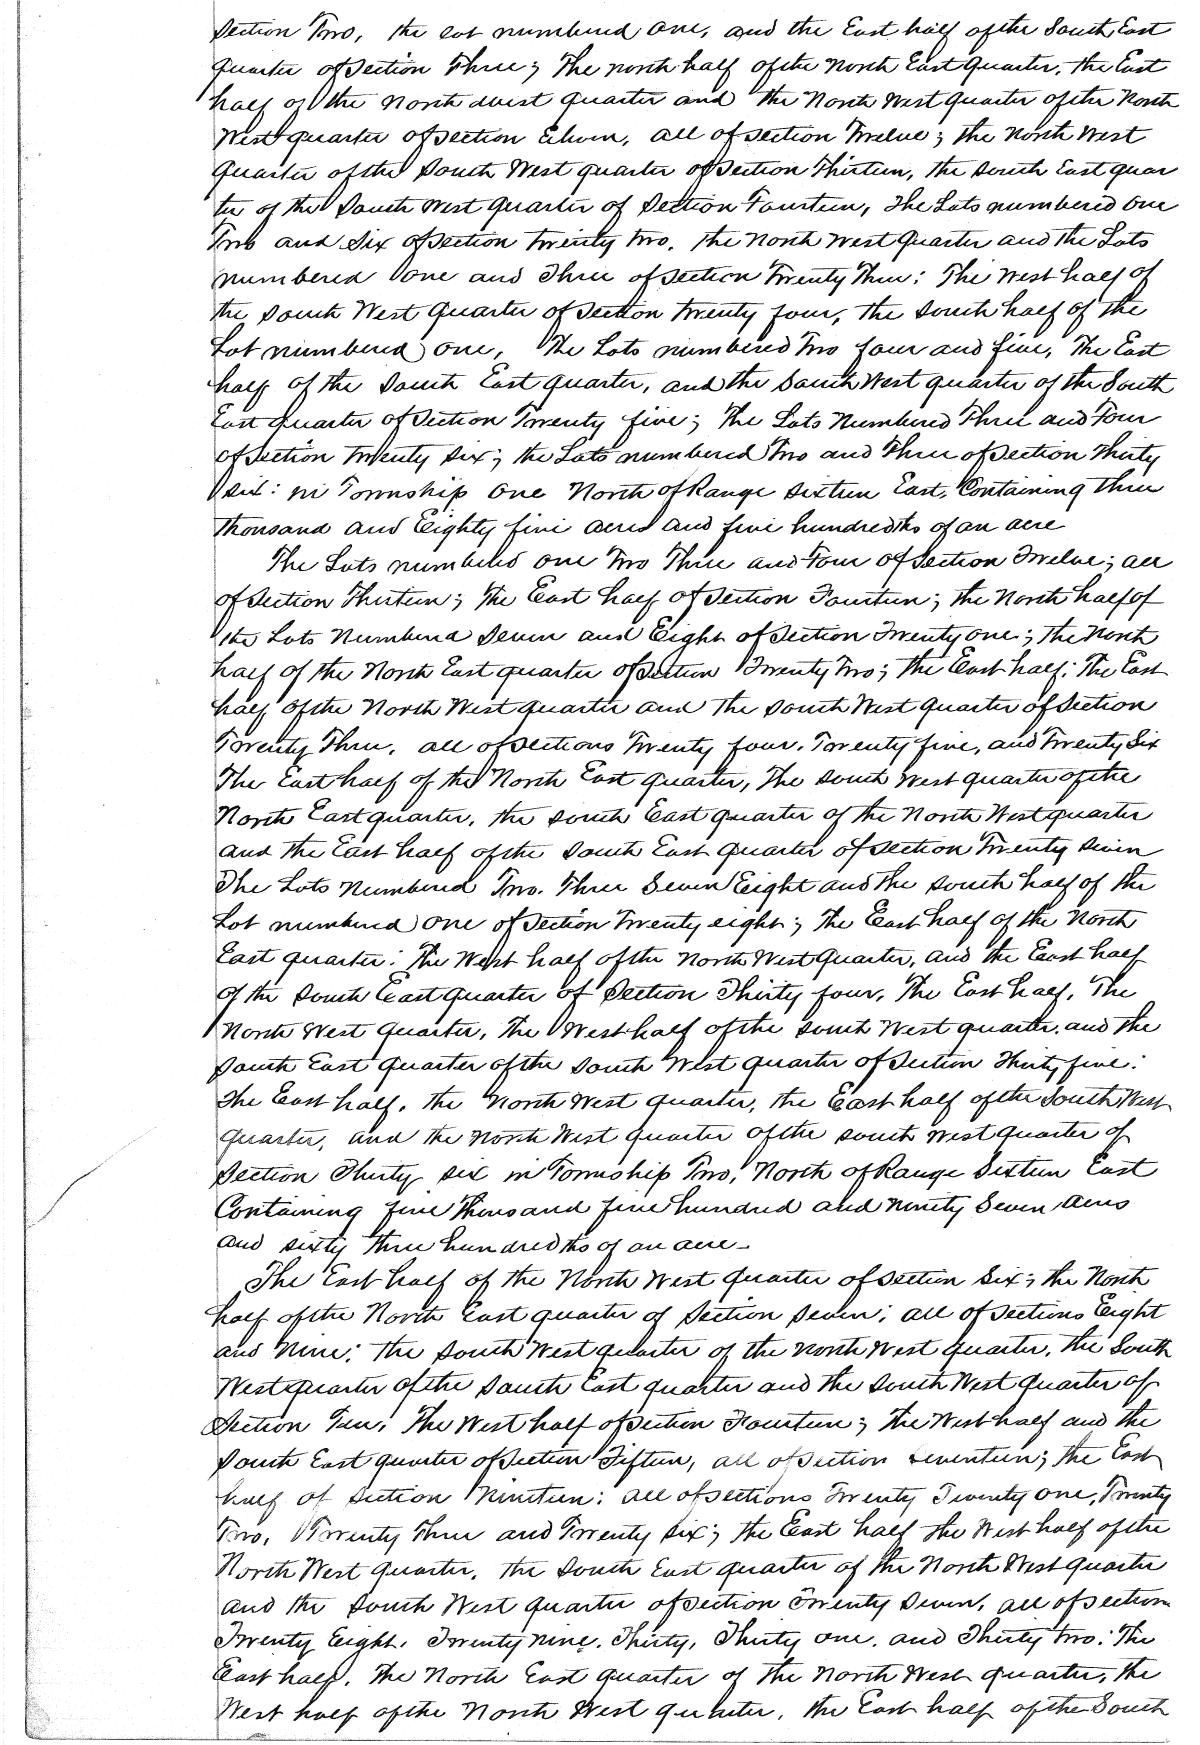 Section Two, the lot numbered one, and the East half of the South East
quarter of Section Three; The north half of the North East Quarter, the East
half of the North West Quarter and the North West Quarter of the North
West quarter of Section Eleven, all of Section Twelve; the North West
Quarter of the South West quarter of Section Thirteen, the South East quar
ter of the South West Quarter of Section Fourteen, The Lots numbered one
Two and Six of Section twenty two, the North West Quarter and the Lots
numbered one and Three of Section Twenty Three: The West half of
the South West Quarter of Section twenty four, the South half of the
Lot numbered one, The Lots numbered Two four and five, The East
half of the South East quarter, and the South West quarter of the South
East quarter of Section Twenty five; The Lots Numbered Three and Four
of Section Twenty Six; the Lots numbered Two and Three of Section Thirty
six: in Township one North of Range Sixteen East, Containing three
thousand and Eighty five acres and five hundredths of an acre
The Lots numbered one Two Three and Four of Section Twelve; all
of Section Thirteen; The East half of Section Fourteen; the North half of
the Lots Numbered Seven and Eight of Section Twenty one; The North
half of the North East quarter of Section Twenty Two; the East half: The East
half of the North West quarter and the South West Quarter of Section
Twenty Three, all of Sections Twenty four, Twenty five, and Twenty Six
The East half of the North East quarter, The South West quarter of the
North East quarter, the South East quarter of the North West quarter
and the East half of the South East Quarter of Section Twenty Seven
The Lots Numbered Two, Three Seven Eight and the South half of the
Lot numbered one of Section Twenty eight; The East half of the North
East quarter: The West half of the North West Quarter, and the East half
of the South East quarter of Section Thirty four, The East half, The
North West quarter, The West half of the South West quarter, and the
South East quarter of the South West quarter of Section Thirty five:
The East half, the North West quarter, the East half of the South West
quarter, and the North West quarter of the South West quarter of
Section Thirty six in Township Two, North of Range Sixteen East
Containing five Thousand five hundred and ninety Seven Acres
and sixty three hundredths of an acre-
The East half of the North West Quarter of Section Six; the North
half of the North East quarter of Section Seven; all of Sections Eight
and Nine; the South West quarter of the North West quarter, the South
West quarter of the South East quarter and the South West Quarter of
Section Ten, The West half of Section Fourteen; The West half and the
South East quarter of Section Fifteen, all of Section Seventeen; the East
half of Section Nineteen; all of Sections Twenty Twenty one, Twenty
Two, Twenty Three and Twenty Six; the East half the West half of the
North West Quarter, the South East quarter of the North West quarter
and the South West quarter of Section Twenty Seven, all of Sections
Twenty Eight, Twenty nine, Thirty, Thirty one, and Thirty two: The
East half, The North East quarter of the North West quarter, the
West half of the North West quarter, the East half of the South